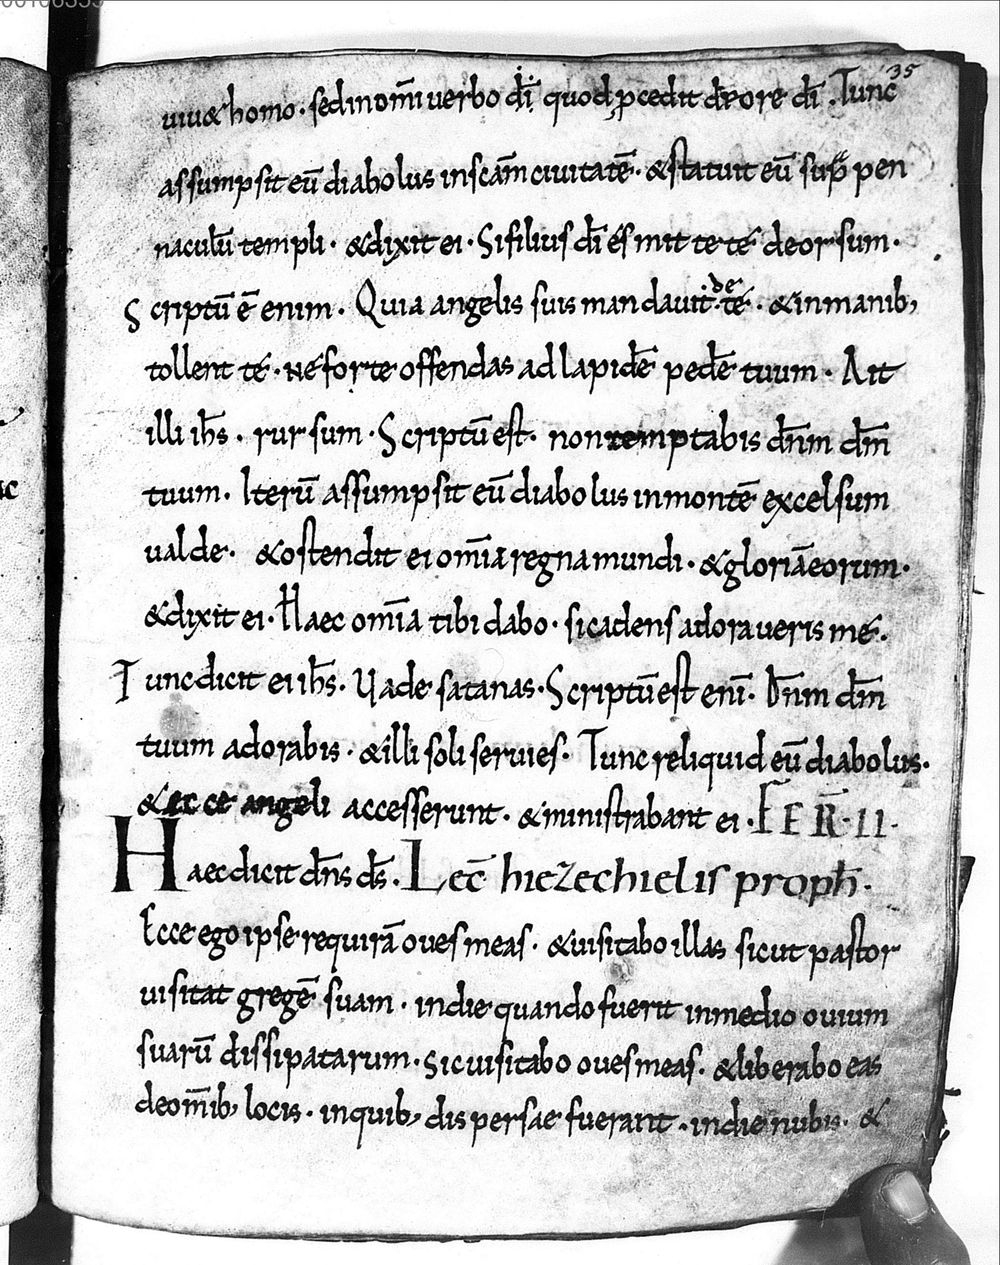 35
uiu& homo · sed in om̄i uerbo dī quod ꝓcedit de ore dī . Tunc
assumpsit eū diabolus in scām ciuitatē · & statuit eū sup̄ pen
naculū templi · & dixit ei · Si filius dī és mitte té deorsum ·
Scriptū ē enim . Quia angelis suis mandauit de té · & in manib;
tollent té · né forte offendas ad lapidē pedē tuum · Ait
illi ih̄s . rursum · Scriptū est · non temptabis dn̄m dm̄
tuum . Iterū assumpsit eū diabolus in montē excelsum
ualde · & ostendit ei om̄ia regna mundi . & gloriā eorum ·
& dixit ei · Haec om̄ia tibi dabo · si cadens adoraueris mé .
Tunc dicit ei ih̄s . Uade satanas · Scriptū est enī · Dn̄m dm̄
tuum adorabis · & illi soli seruies · Tunc reliquid eū diabolus ·
& ecce angeli accesserunt · & ministrabant ei · FER̄ · II ·
Haec dicit dn̄s ds̄ . Lec̄ hiezechielis proph̄ ·
Ecce ego ipse requirā oues meas · & uisitabo illas sicut pastor
uisitat gregē suam · in die quando fuerit in medio ouium
suarū dissipatarum · sic uisitabo oues meas · & liberabo eas
de om̄ib; locis · in quib; dispersae fuerant · in die nubis · &